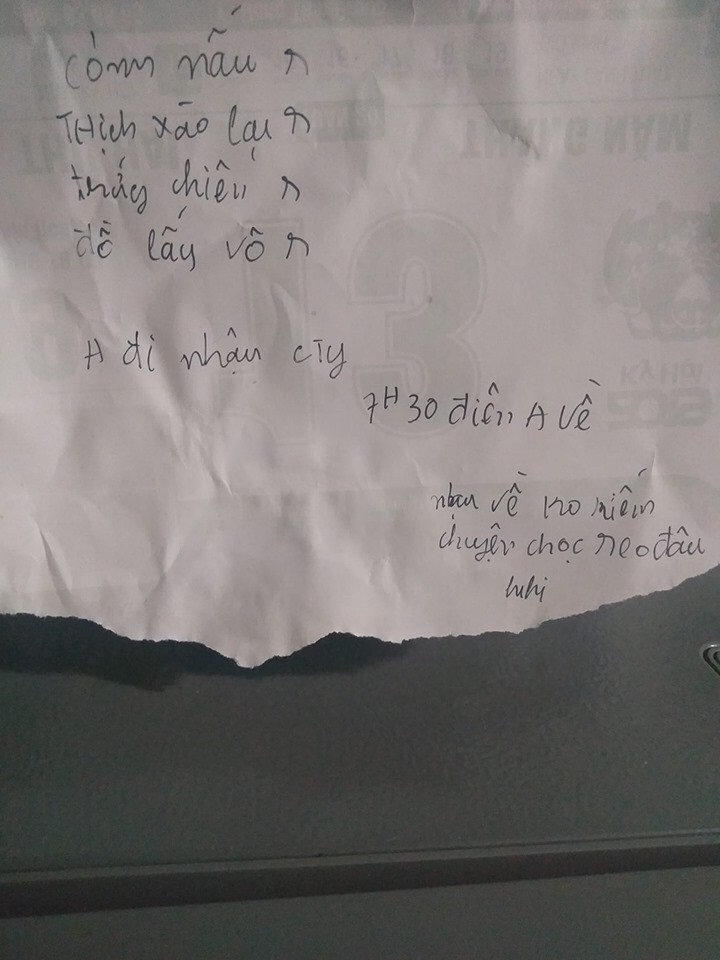 cơm nấu r
THịch xào lại r
trứng chiên r
đồ lấy vô r
A đi nhậu cty
7H30 điện A về
nhậu về ko kiếm
chuyện chọc neo đâu
hihi
THÁNG NĂM
13